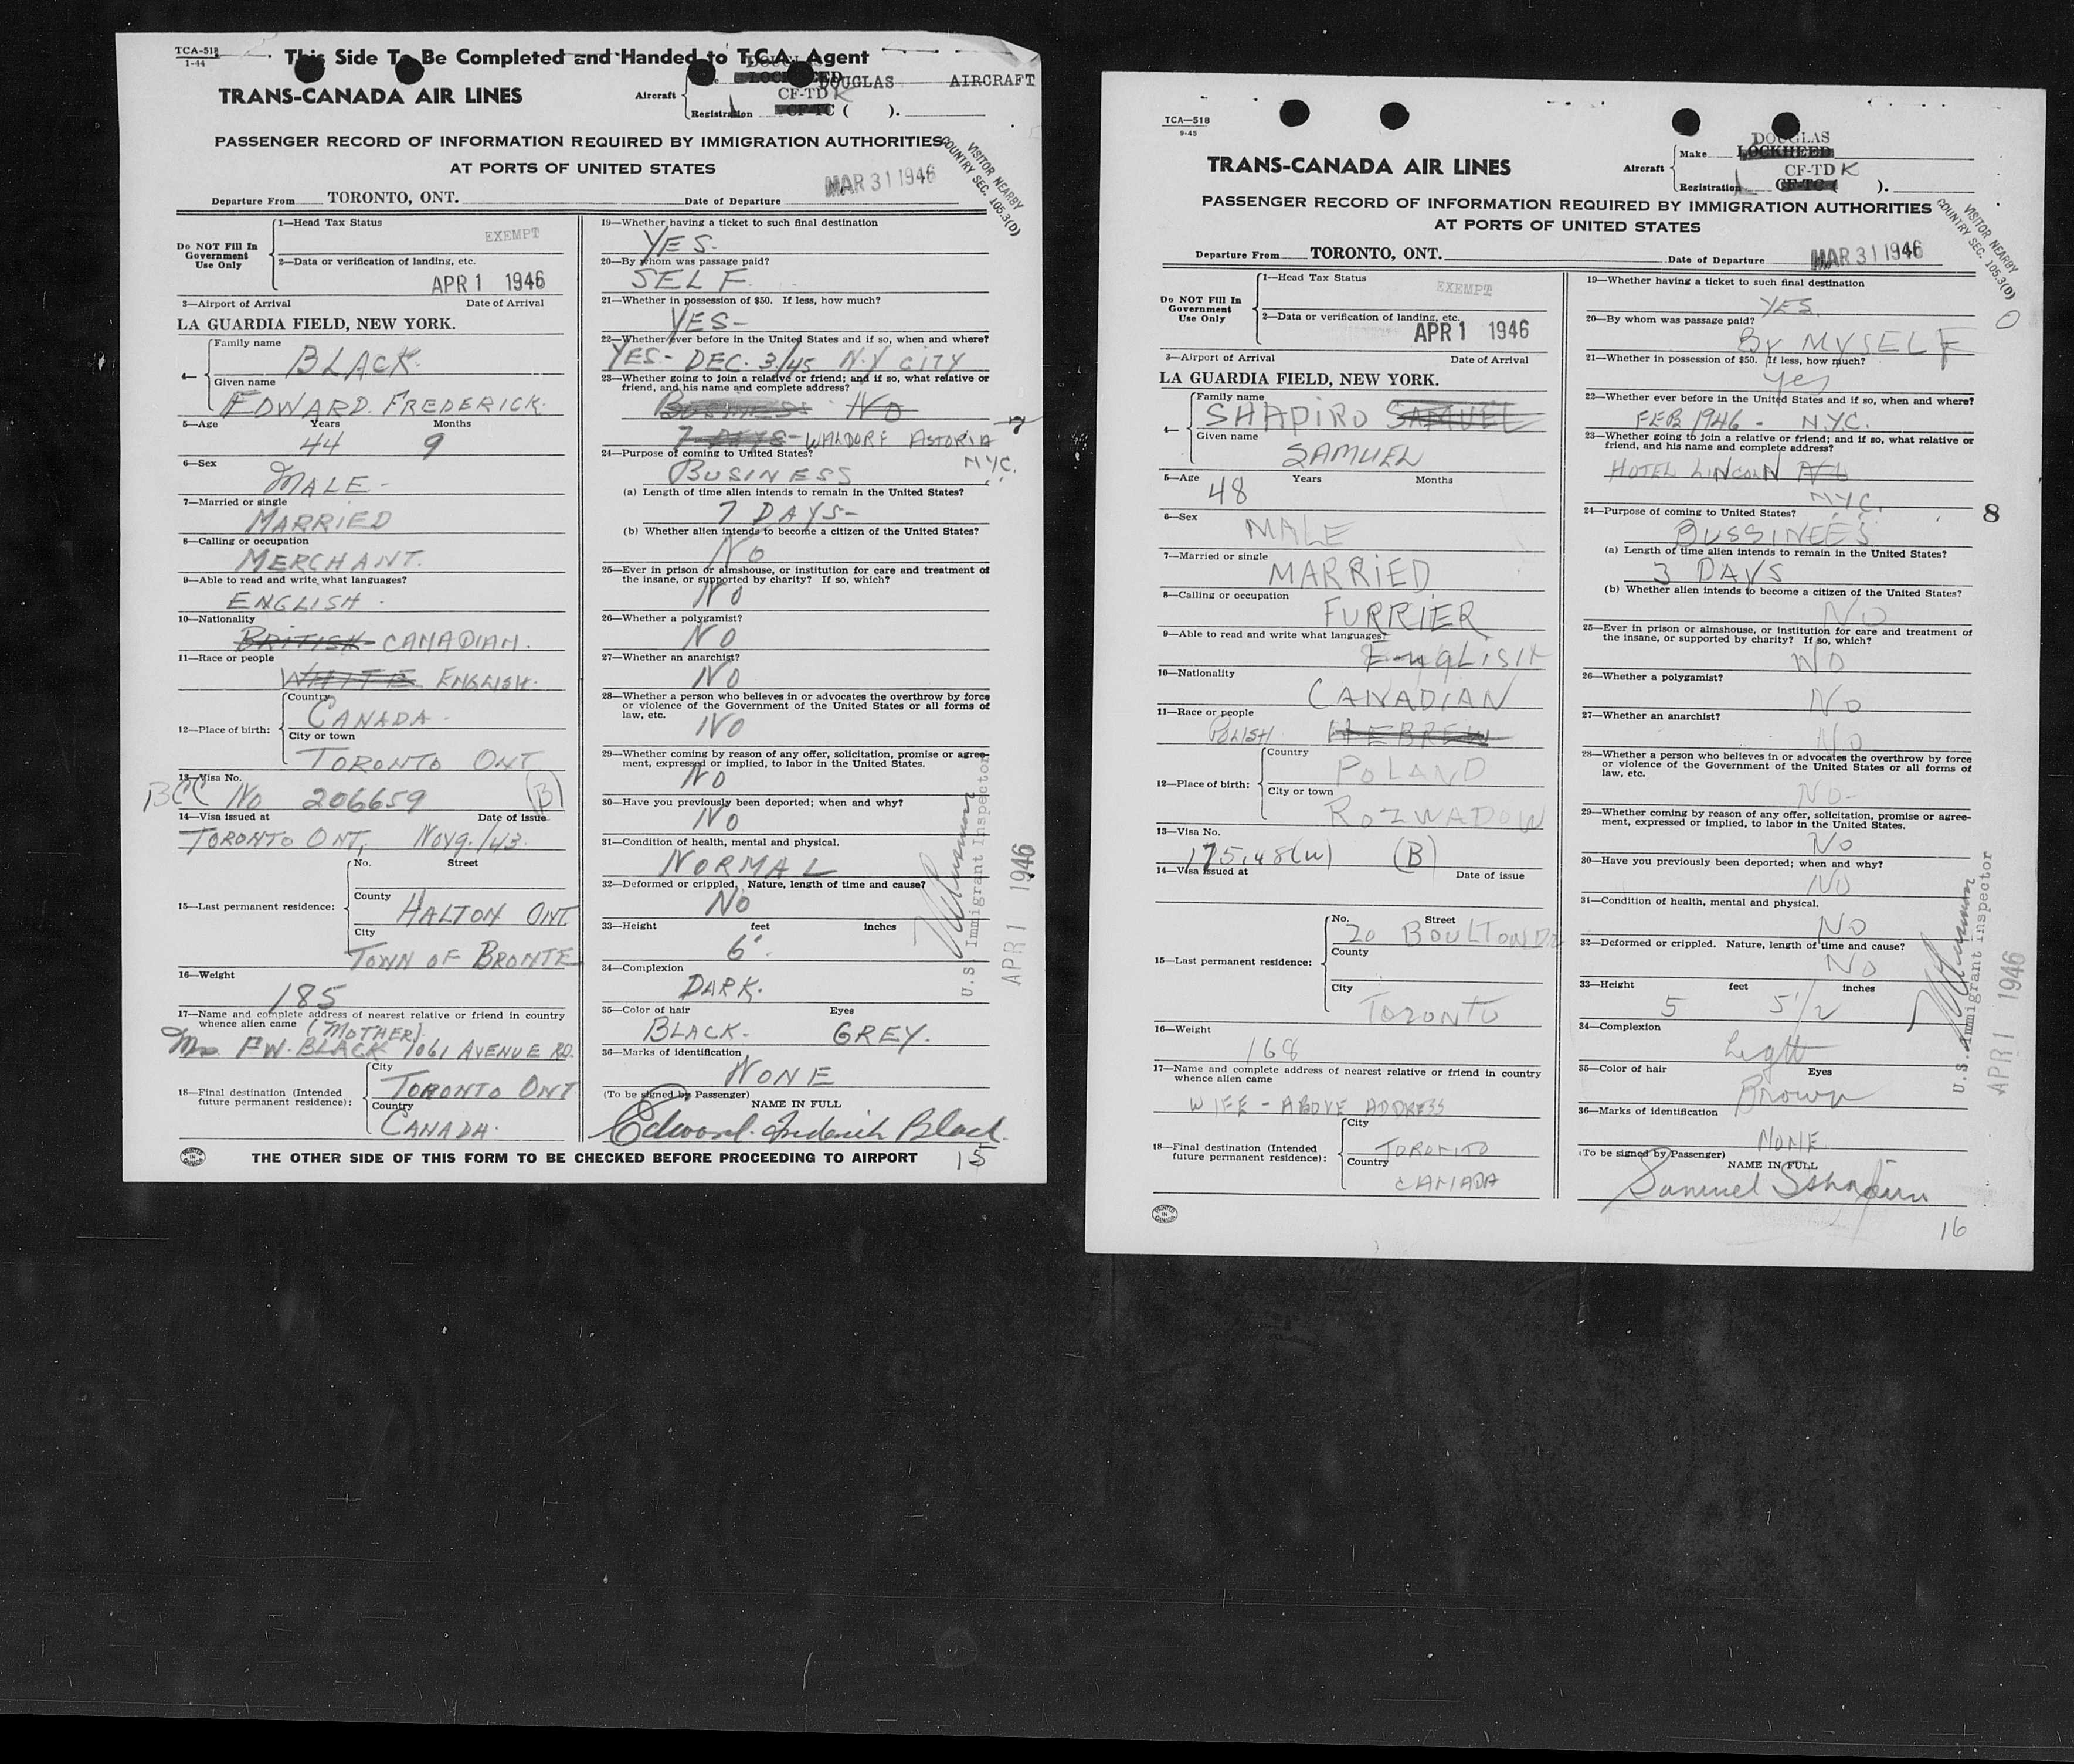 TCA-518
1-44
This Side To Be Completed and Handed to T.C.A. Agent
TRANS-CANADA AIR LINES
Aircraft
DOUGLAS
LOCKHEED DOUGLAS AIRCRAFT
CF-TD K
Registration CF-TC ( ).
PASSENGER RECORD OF INFORMATION REQUIRED BY IMMIGRATION AUTHORITIES
AT PORTS OF UNITED STATES
VISITOR NEARBY
COUNTRY SEC. 105.3(D)
Departure From TORONTO, ONT. Date of Departure MAR 31 1946
Do NOT Fill In
Government
Use Only
1—Head Tax Status
EXEMPT
2—Data or verification of landing, etc.
APR 1 1946
3—Airport of Arrival Date of Arrival
LA GUARDIA FIELD, NEW YORK.
4—
Family name
BLACK.
Given name
EDWARD. FREDERICK.
5—Age Years Months
44 9
6—Sex
MALE-
7—Married or single
MARRIED
8—Calling or occupation
MERCHANT.
9—Able to read and write what languages?
ENGLISH.
10—Nationality
BRITISH- CANADIAN.
11—Race or people
WHITE ENGLISH.
12—Place of birth:
Country
CANADA-
City or town
TORONTO ONT
13—Visa No.
BCC No 206659 (B)
14—Visa issued at Date of issue
TORONTO ONT, NOV 9./43.
15—Last permanent residence:
No. Street
County
HALTON ONT
City
TOWN OF BRONTE
16—Weight
185
17—Name and complete address of nearest relative or friend in country
whence alien came (MOTHER).
Mrs F.W. BLACK 1061 AVENUE RD.
18—Final destination (Intended
future permanent residence):
City
TORONTO ONT
Country
CANADA.
19—Whether having a ticket to such final destination
YES-
20—By whom was passage paid?
SELF.
21—Whether in possession of $50. If less, how much?
YES-
22—Whether ever before in the United States and if so, when and where?
YES- DEC. 3/45 N.Y CITY
23—Whether going to join a relative or friend; and if so, what relative or
friend, and his name and complete address?
BUSINESS NO
7 DAYS- WALDORF ASTORIA 7
N.Y.C.
24—Purpose of coming to United States?
BUSINESS
(a) Length of time alien intends to remain in the United States?
7 DAYS-
(b) Whether alien intends to become a citizen of the United States?
NO
25—Ever in prison or almshouse, or institution for care and treatment of
the insane, or supported by charity? If so, which?
NO
26—Whether a polygamist?
NO
27—Whether an anarchist?
NO
28—Whether a person who believes in or advocates the overthrow by force
or violence of the Government of the United States or all forms of
law, etc.
NO
29—Whether coming by reason of any offer, solicitation, promise or agree-
ment, expressed or implied, to labor in the United States.
NO
30—Have you previously been deported; when and why?
NO
31—Condition of health, mental and physical.
NORMAL
32—Deformed or crippled. Nature, length of time and cause?
NO
33—Height feet inches
6'.
34—Complexion
DARK.
35—Color of hair Eyes
BLACK- GREY.
36—Marks of identification
NONE
(To be signed by Passenger)
NAME IN FULL
Edward Frederick Black.
U.S. Immigrant Inspector
APR 1 1946
PRINTED IN CANADA
THE OTHER SIDE OF THIS FORM TO BE CHECKED BEFORE PROCEEDING TO AIRPORT
15
TCA—518
9-45
TRANS-CANADA AIR LINES
Aircraft
DOUGLAS
Make LOCKHEED
CF-TD K
Registration CF-TC ( ).
PASSENGER RECORD OF INFORMATION REQUIRED BY IMMIGRATION AUTHORITIES
AT PORTS OF UNITED STATES
VISITOR NEARBY
COUNTRY SEC. 105.3(D)
Departure From TORONTO, ONT. Date of Departure MAR 31 1946
Do NOT Fill In
Government
Use Only
1—Head Tax Status
EXEMPT
2—Data or verification of landing, etc.
APR 1 1946
3—Airport of Arrival Date of Arrival
LA GUARDIA FIELD, NEW YORK.
4—
Family name
SHAPIRO SAMUEL
Given name
SAMUEL
5—Age Years Months
48
6—Sex
MALE
7—Married or single
MARRIED
8—Calling or occupation
FURRIER
9—Able to read and write what languages?
ENGLISH
10—Nationality
CANADIAN
11—Race or people
POLISH HEBREW
12—Place of birth:
Country
POLAND
City or town
ROZWADOW
13—Visa No.
175.48(w) (B)
14—Visa issued at Date of issue
15—Last permanent residence:
No. Street
20 BOULTON DR
County
City
TORONTO
16—Weight
168
17—Name and complete address of nearest relative or friend in country
whence alien came
WIFE - ABOVE ADDRESS
18—Final destination (Intended
future permanent residence):
City
TORONTO
Country
CANADA
19—Whether having a ticket to such final destination
YES.
0
20—By whom was passage paid?
By MYSELF
21—Whether in possession of $50. If less, how much?
yes
22—Whether ever before in the United States and if so, when and where?
FEB 1946 - N.Y.C.
23—Whether going to join a relative or friend; and if so, what relative or
friend, and his name and complete address?
HOTEL LINCOLN
N.Y.C.
8
24—Purpose of coming to United States?
BUSSINEES
(a) Length of time alien intends to remain in the United States?
3 DAYS
(b) Whether alien intends to become a citizen of the United States?
NO
25—Ever in prison or almshouse, or institution for care and treatment of
the insane, or supported by charity? If so, which?
NO
26—Whether a polygamist?
NO
27—Whether an anarchist?
NO
28—Whether a person who believes in or advocates the overthrow by force
or violence of the Government of the United States or all forms of
law, etc.
NO-
29—Whether coming by reason of any offer, solicitation, promise or agree-
ment, expressed or implied, to labor in the United States.
NO
30—Have you previously been deported; when and why?
NO
31—Condition of health, mental and physical.
NO
32—Deformed or crippled. Nature, length of time and cause?
NO
33—Height feet inches
5 5 1/2
34—Complexion
Light
35—Color of hair Eyes
Brown
36—Marks of identification
NONE
(To be signed by Passenger)
NAME IN FULL
Samuel Sshapiro
U.S. Immigrant Inspector
APR 1 1946
PRINTED IN CANADA
16